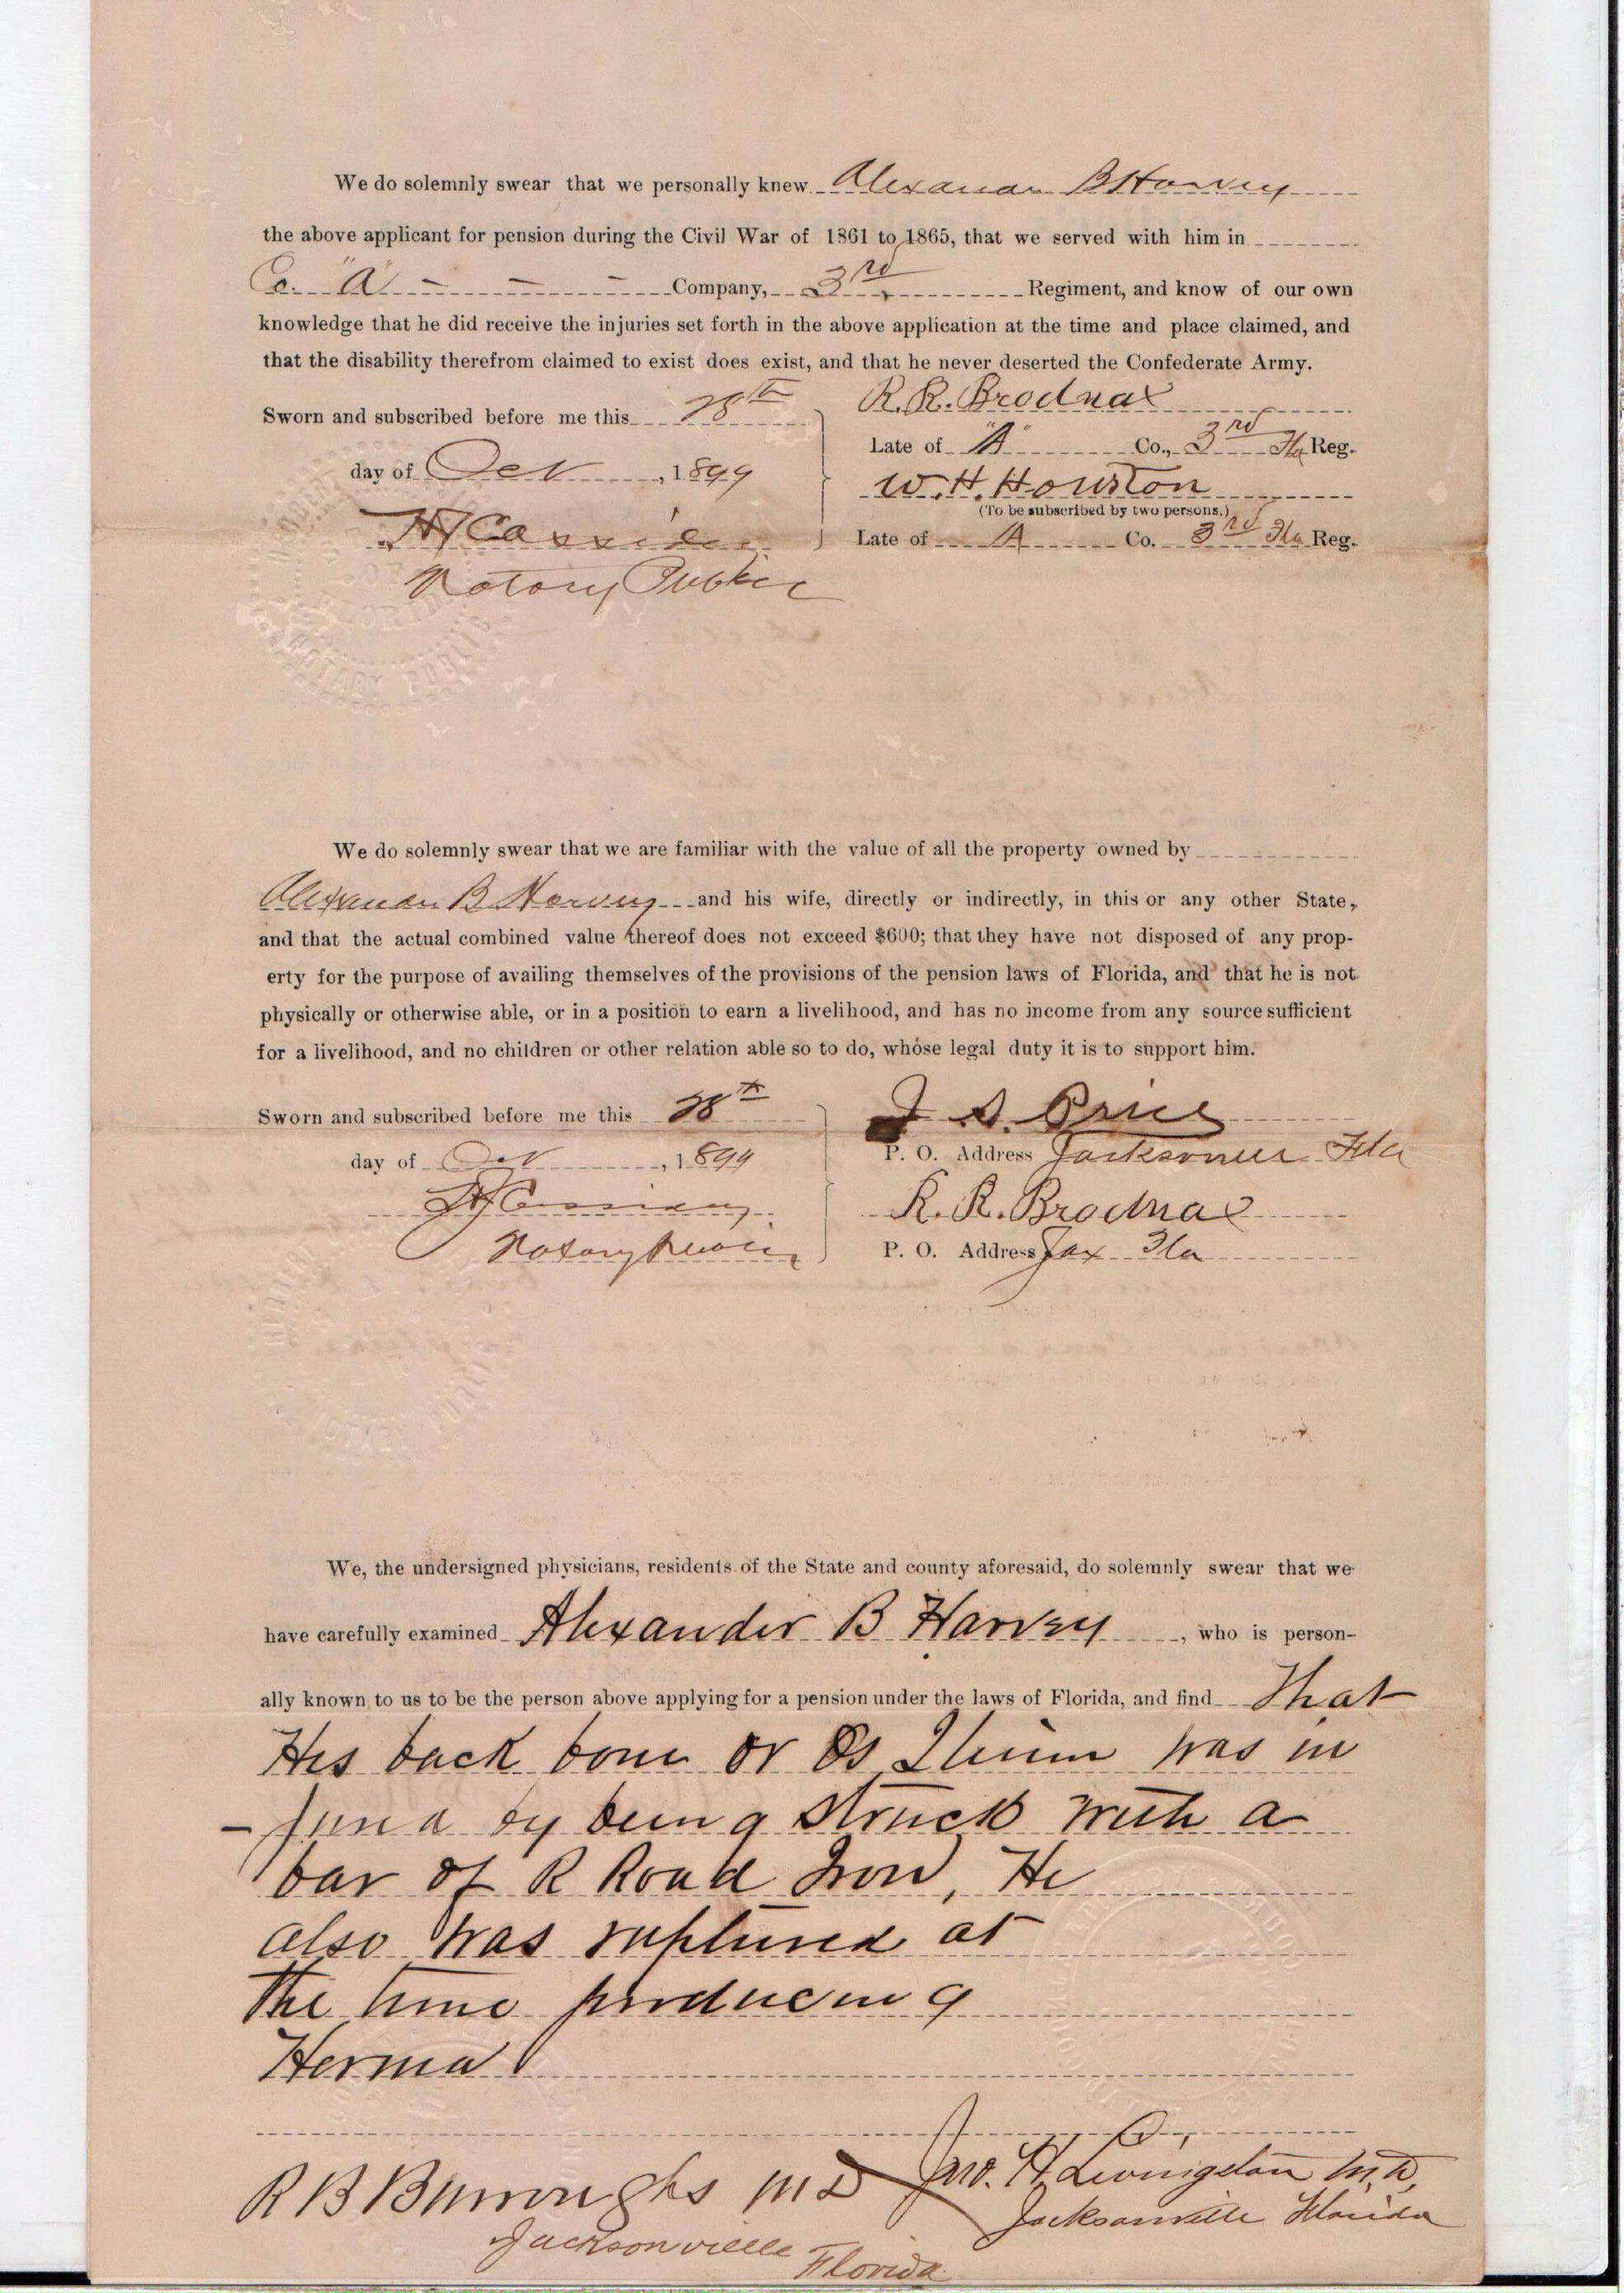 We do solemnly swear that we personally knew Alexander B Harvey
the above applicant for pension during the Civil War of 1861 to 1865, that we served with him in
Co. "A" Company, 3rd Regiment, and know of our own
knowledge that he did receive the injuries set forth in the above application at the time and place claimed, and
that the disability therefrom claimed to exist does exist, and that he never deserted the Confederate Army.
R. R. Brodnax
Sworn and subscribed before me this 28th
Late of "A" Co., 3rd Fla Reg.
day of Oct, 1899
W. H. Houston
(To be subscribed by two persons.)
Late of A Co. 3rd Fla Reg.
Notary Public
We do solemnly swear that we are familiar with the value of all the property owned by
Alexander B Harvey and his wife, directly or indirectly, in this or any other State,
and that the actual combined value thereof does not exceed $600; that they have not disposed of any prop-
erty for the purpose of availing themselves of the provisions of the pension laws of Florida, and that he is not
physically or otherwise able, or in a position to earn a livelihood, and has no income from any source sufficient
for a livelihood, and no children or other relation able so to do, whose legal duty it is to support him.
Sworn and subscribed before me this 28th
J. S. Price
day of Oct, 1899
P. O. Address Jacksonville Fla
R. R. Brodnax
Notary Public
P. O. Address Jax Fla
We, the undersigned physicians, residents of the State and county aforesaid, do solemnly swear that we
have carefully examined Alexander B Harvey, who is person-
ally known to us to be the person above applying for a pension under the laws of Florida, and find That
His back bone or Os Ilium was in
-jured by being struck with a
bar of R Road Iron, He
also was ruptured at
The time producing
Hernia
R B Burroughs MD
Jno. H. Livingston M.D.
Jacksonville Florida
Jacksonville Florida